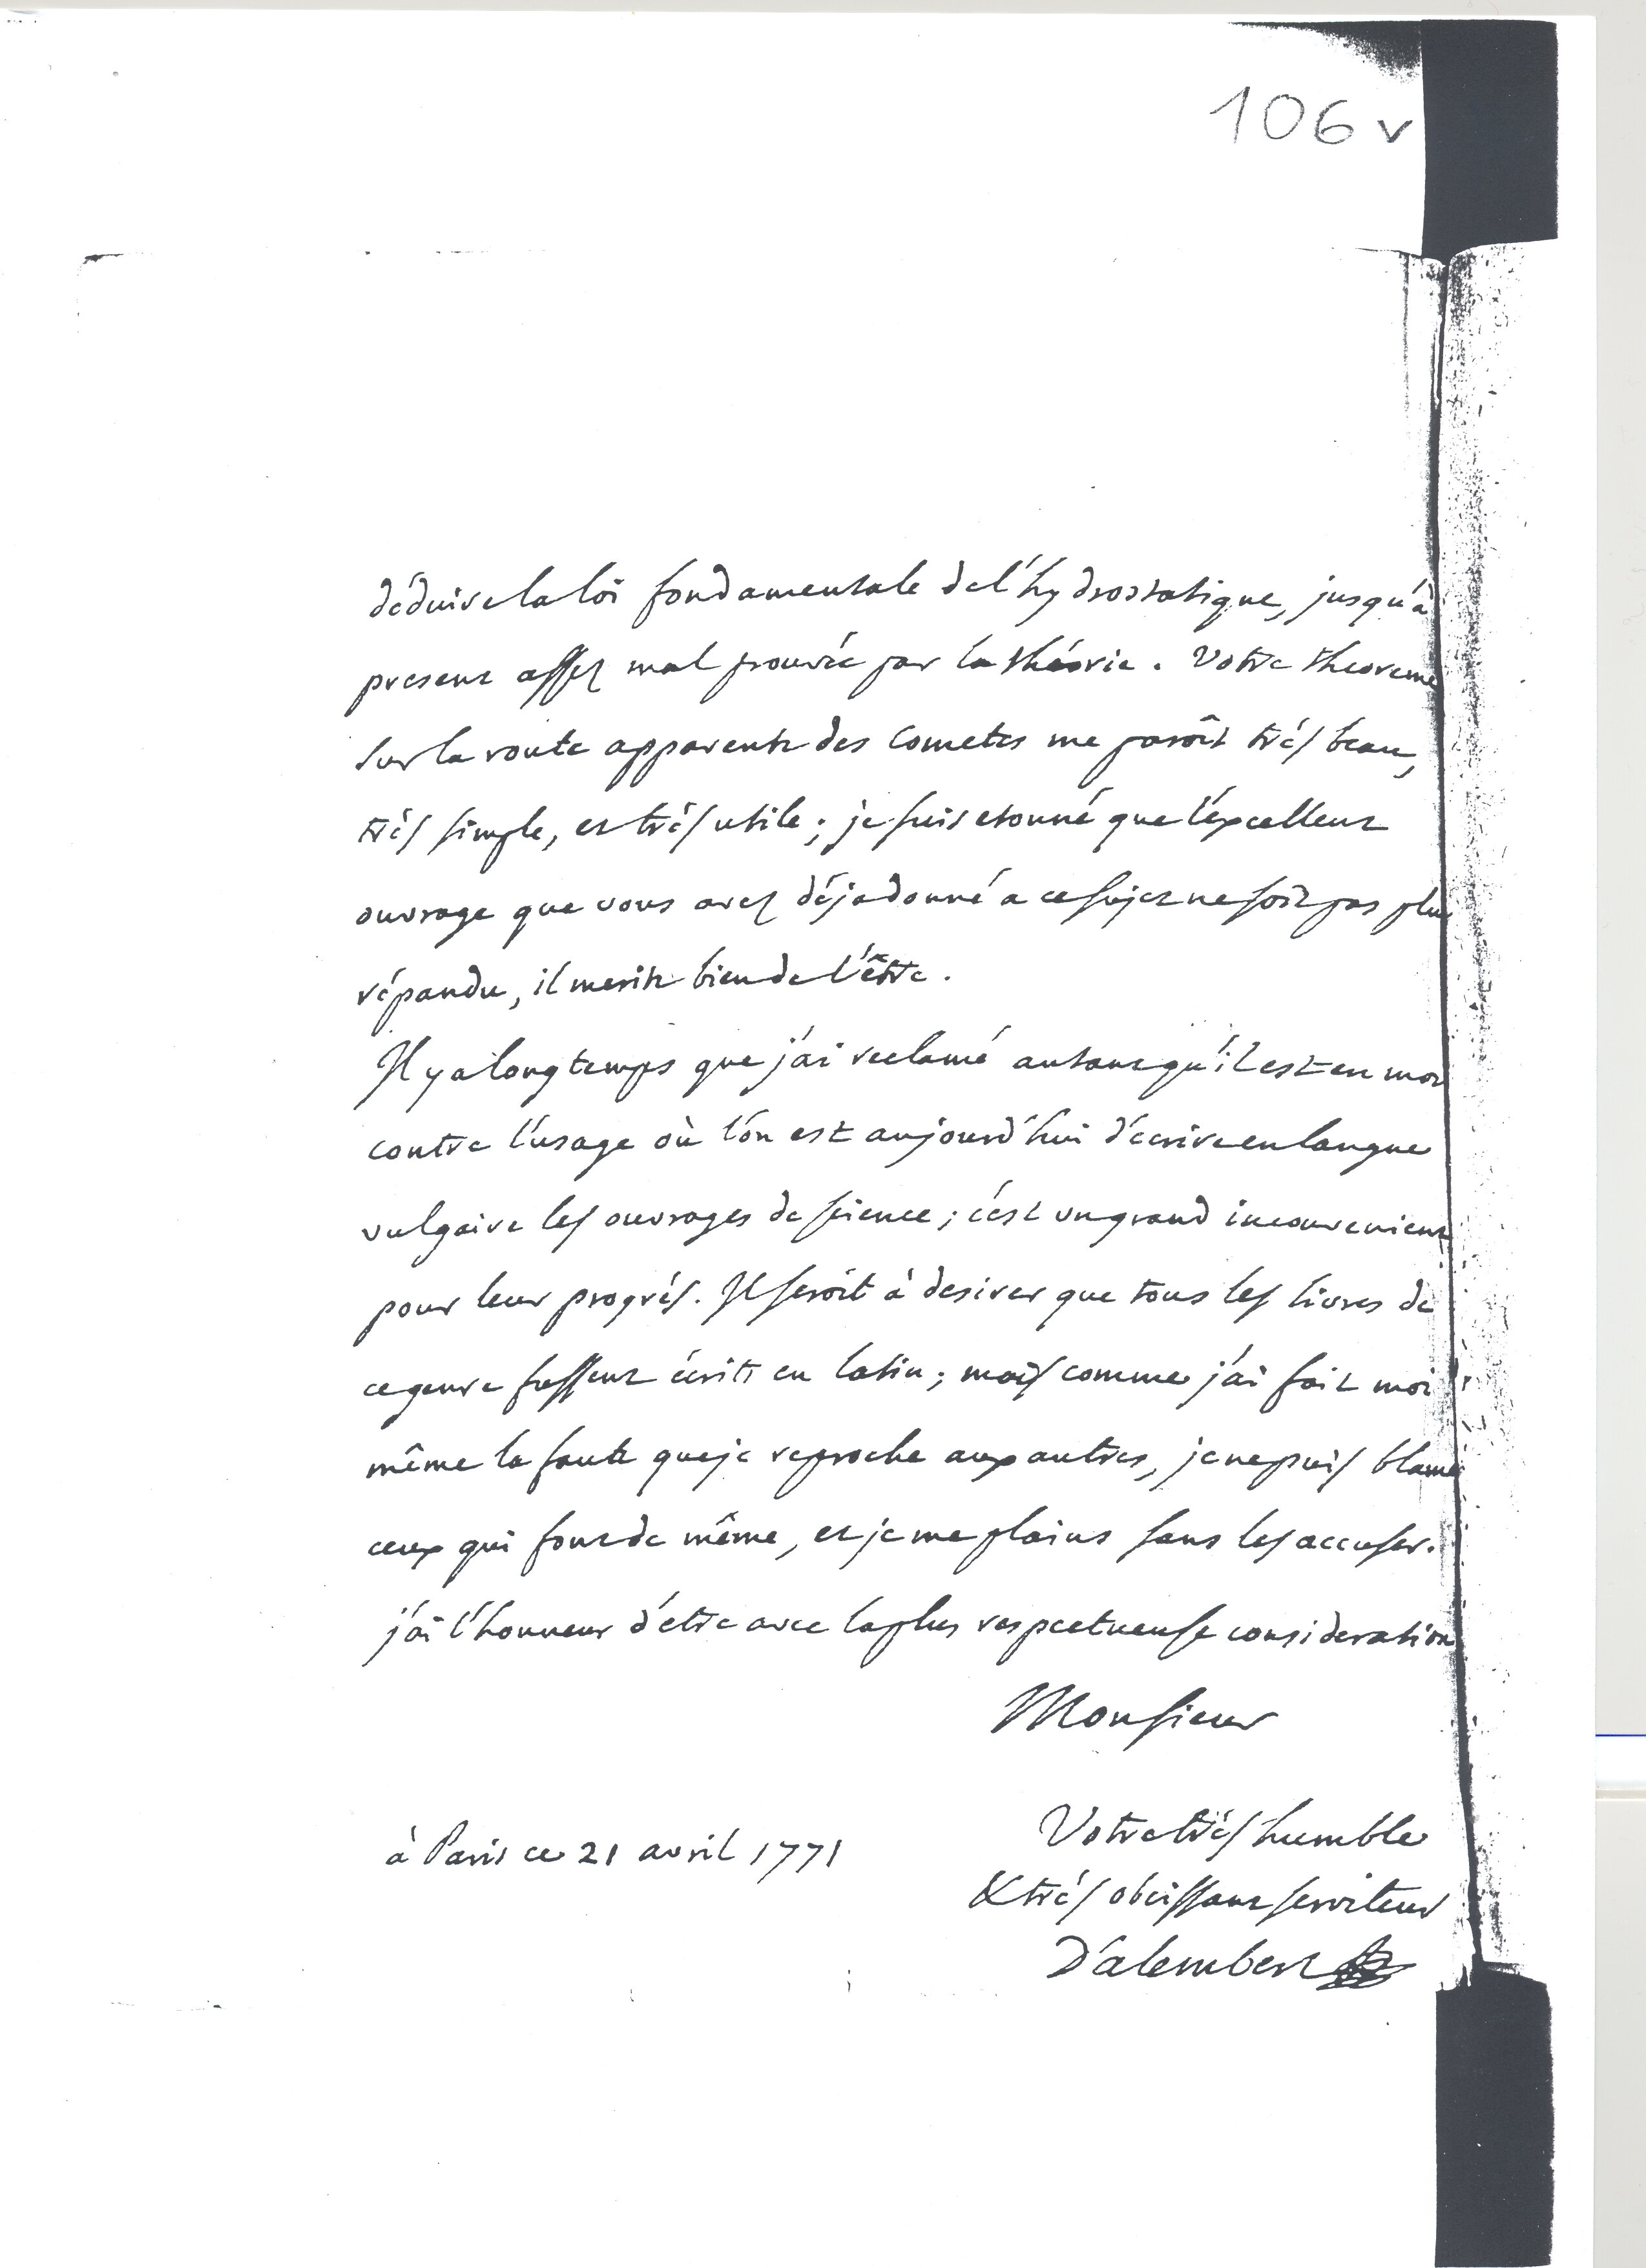 106 v
déduire la loi fondamentale de l'hydrostatique, jusqu'à
present assez mal prouvée par la théorie. Votre theoreme
sur la route apparente des Cometes me paroît très beau,
très simple, et très utile; je suis etonné que l'excellent
ouvrage que vous avez déja donné a ce sujet ne soit pas plus
répandu, il merite bien de l'être.
Il y a longtemps que j'ai reclamé autant qu'il est en moi
contre l'usage où l'on est aujourd'hui d'ecrire en langue
vulgaire les ouvrages de science; c'est un grand inconvenient
pour leur progrès. Il seroit à desirer que tous les livres de
ce genre fussent écrits en latin; mais comme j'ai fait moi
même la faute que je reproche aux autres, je ne puis blamer
ceux qui font de même, et je me plains sans les accuser.
j'ai l'honneur d'etre avec la plus respectueuse consideration
Monsieur
Votre très humble
à Paris ce 21 avril 1771
& très obeissant serviteur
D'alembert